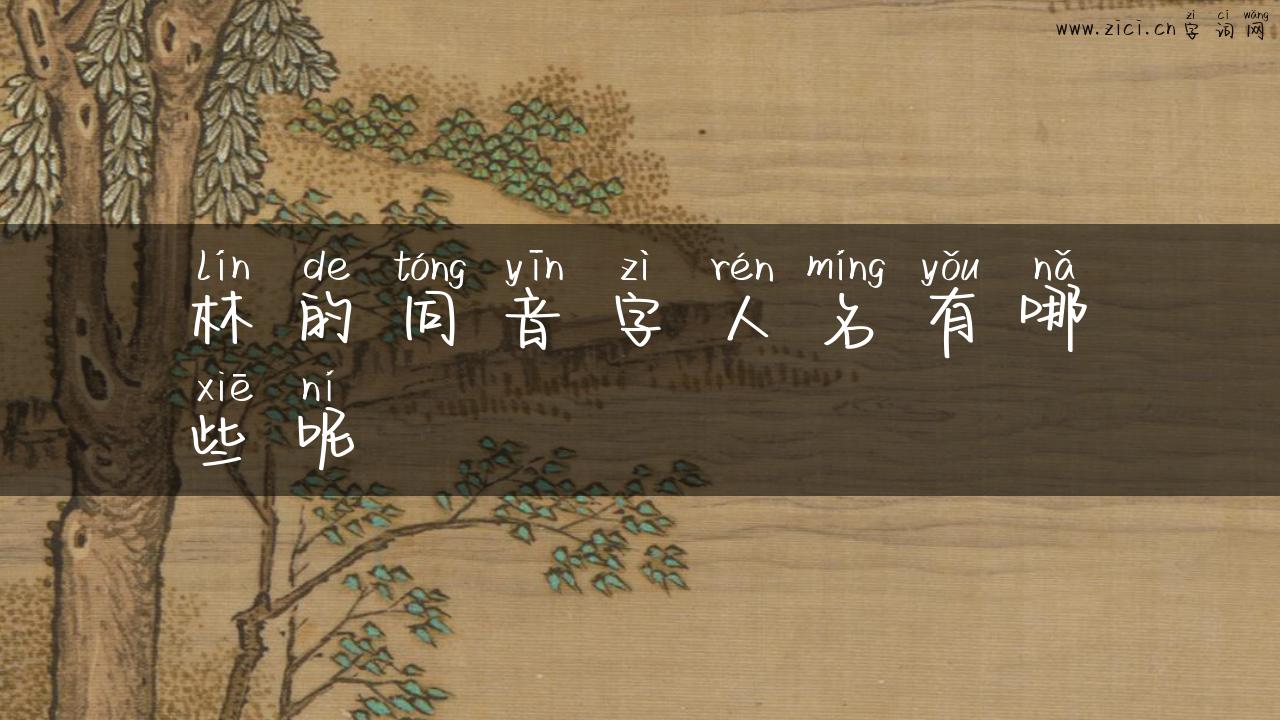 zì cí wǎng
www.zici.cn 字 词 网
lín de tóng yīn zì rén míng yǒu nǎ
林 的 同 音 字 人 名 有 哪
xiē ní
些 呢